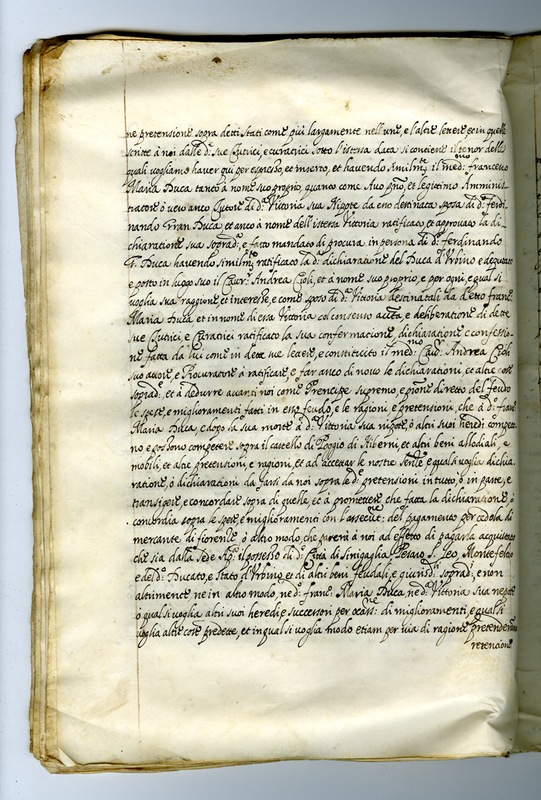 ne pretensione sopra detti stati come più largamente nell'une, e l'altre lettere et in quelle
scritte à noi dalle d.e sue Tutrici, e curatrici sotto l'istessa data si contiene il tenor delle
quali vogliamo haver qui per espresso, et inserto, et havendo similm.te il med.mo francesco
Maria Duca tanto à nome suo proprio, quanto come Avo pño, et legitimo Amminis-
tratore ò vero anco Tutore di d.a Vittoria sua Nipote da esso destinata sposa di d.o ferdi-
nando Gran Duca, et anco à nome dell'istessa Vittoria ratificato, et approvato la di-
chiaratione sua Soprad.a, e fatto mandato di procura in persona di d.o ferdinando
G. Duca havendo similm.te ratificato la d.a dichiaratione del Duca d'Urbino e deputato
e posto in luogo suo il Cav.r Andrea Cioli, et à nome suo proprio, e per ogni, e qual si
voglia sua raggione, et interesse, e come sposo di d.a Vittoria destinatali da d.etto fran.co
Maria Duca et in nome di essa Vittoria col consenso autorità, e deliberatione di dette
sue Tutrici, e Curatrici ratificato la sua confermatione, dichiaratione e confessio-
ne fatta da lui come in dette sue lettere, e constituito il med.mo Cav.r Andrea Cioli
suo attore, e Procuratore à ratificare, e far anco di novo le dichiarationi, et altre cose
soprad.e, et à dedurre avanti noi come Prencipe supremo, e pñone diretto del feudo
le spese, e miglioramenti fatti in esso feudo, e le ragioni, e pretensioni, che à d.o fran.co
Maria Duca, e dopo la sua morte à d.a Vittoria sua nipote, ò altri suoi heredi competo-
no e possono competere sopra il castello di Poggio di Berni, et altri beni allodiali, e
mobili, et altre pretensioni, e ragioni, et ad accettar le nostre sententie, e qualsivoglia dichia-
ratione, ò dichiarationi da farsi da noi sopra le d.e pretensioni in tutto, ò in parte, e
transigere, e concordare sopra di quelle, et à promettere che fatta la dichiaratione, ò
concordia sopra le spese, e miglioramenti con l'assecut.ne del pagamento per cedola di
mercante di fiorenza ò altro modo, che parerà à noi ad effetto di pagarla acquistato
che sia dalla Sede Ap.ca il possesso di d.a Città di Sinigaglia Vicariato S. Leo, Montefeltro
e del d.o Ducato, e Stato d'Urbino, et di altri beni feudali, e giurisd.li soprad.i, e non
altrimente ne in altro modo, ne d.o fran.co Maria Duca, ne d.a Vittoria sua nepote
ò qual si voglia altri suoi heredi, e successori per occas.ne di miglioramenti, e qual si
voglia altre cose predette, et in qual si voglia modo etiam per via di ragione pretenderanno
retentione